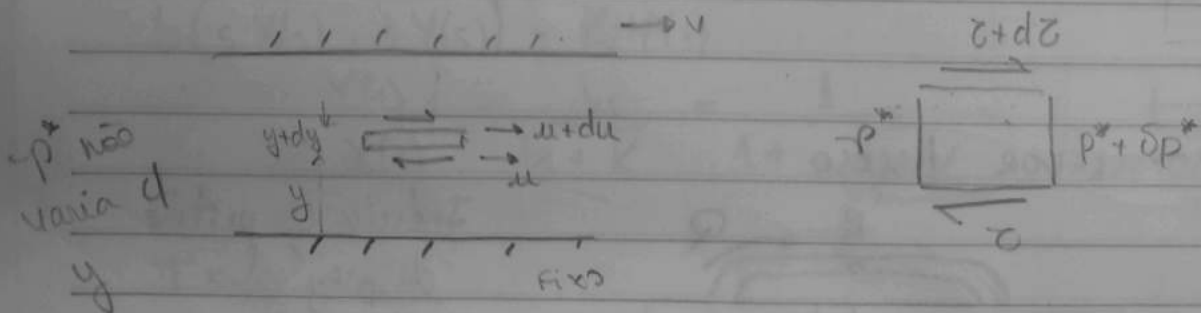 → v
τ+dτ
-p* não
varia d
y
y+dy
y
→ u+du
→ u
Fixo
-p*
p*+δp*
τ